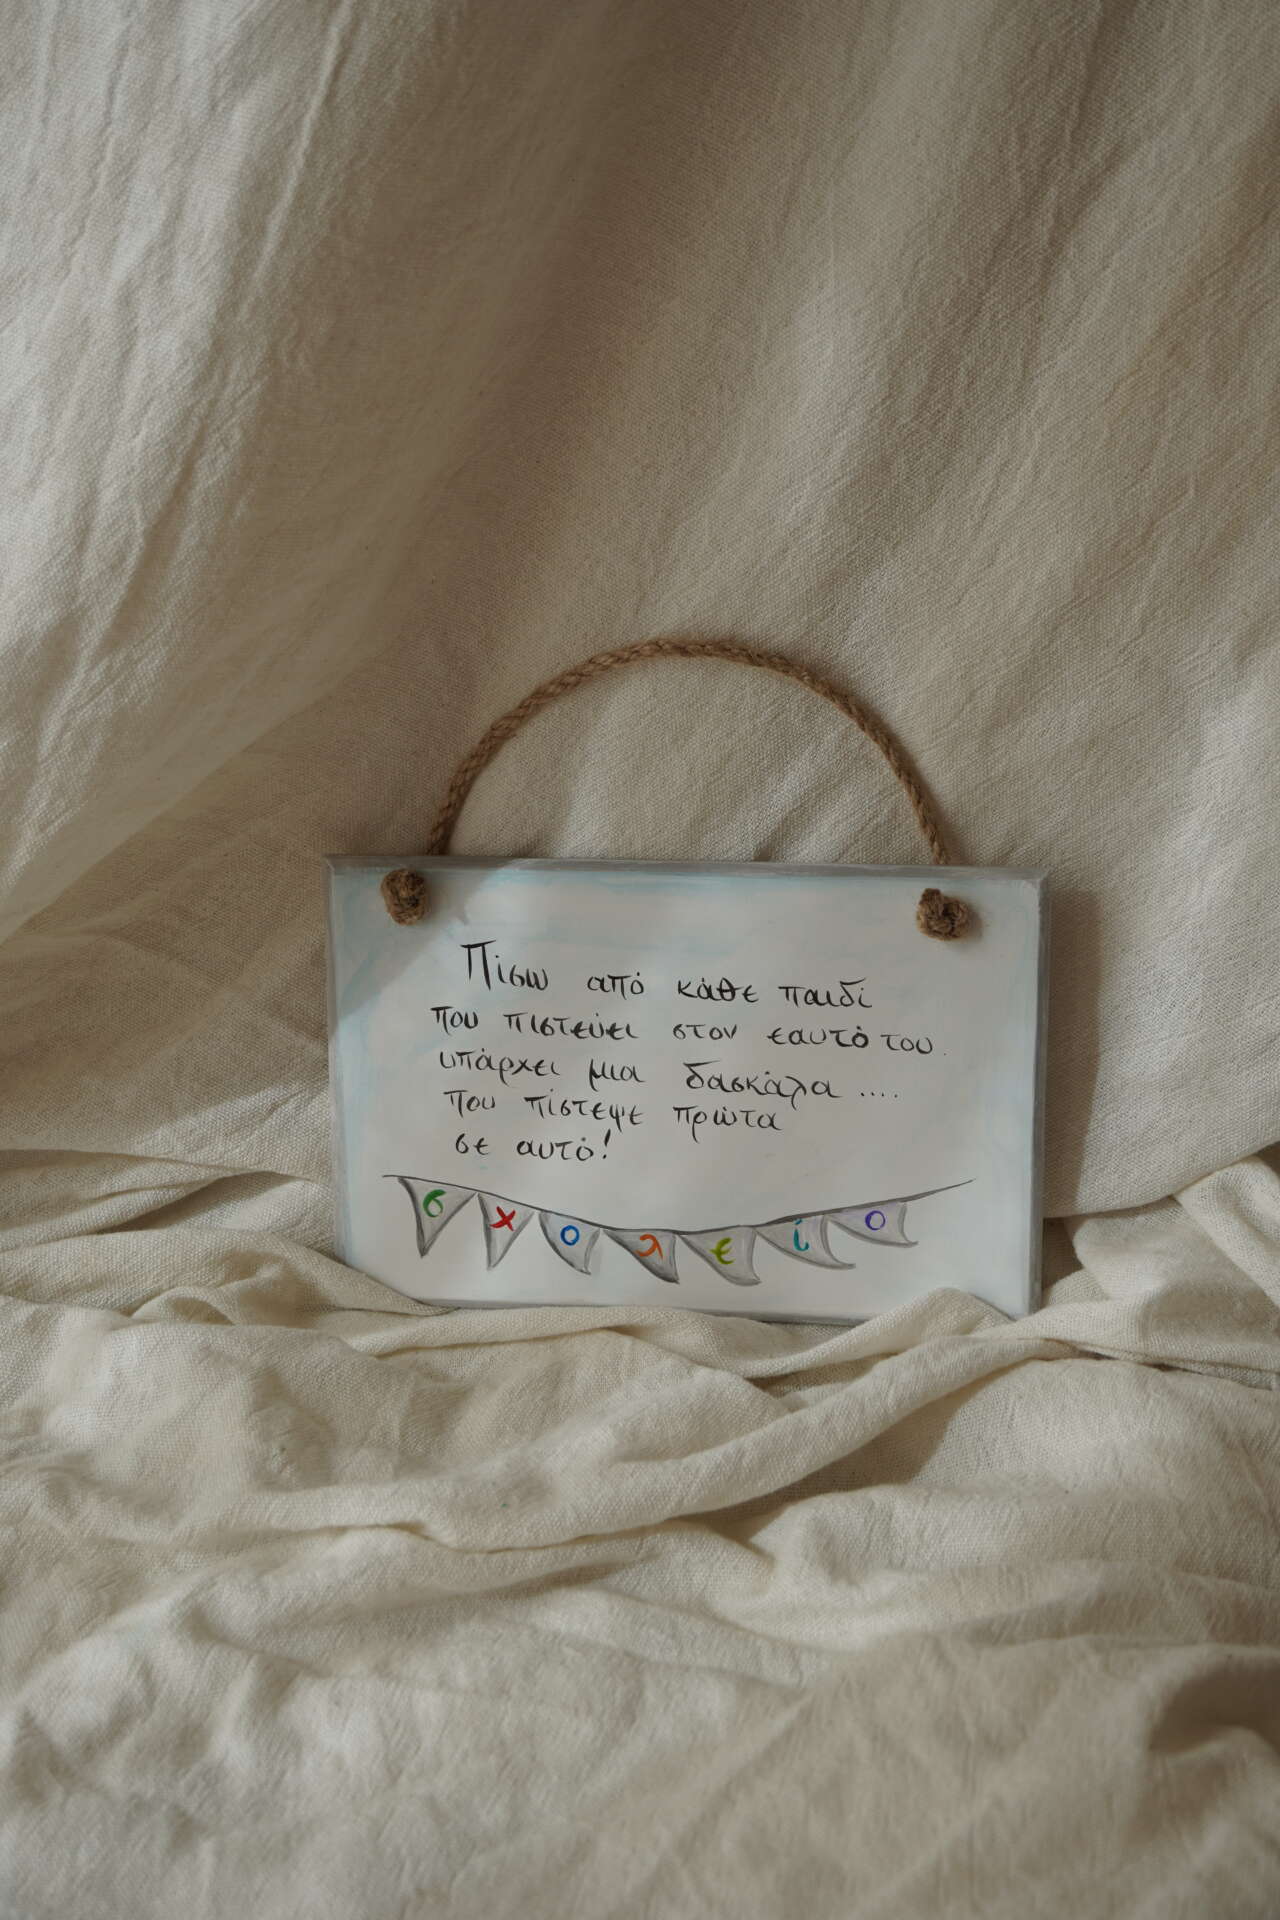 Πίσω από κάθε παιδί
που πιστεύει στον εαυτό του.
υπάρχει μια δασκάλα ....
που πίστεψε πρώτα
σε αυτό!
σχολείο